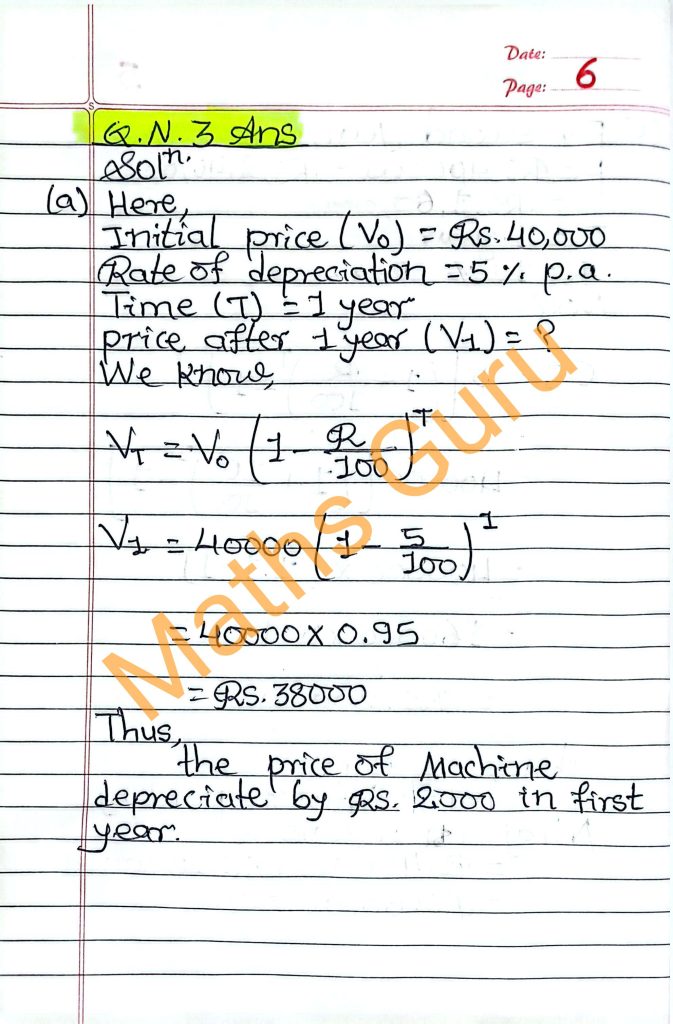 Date:
Page: 6
Q.N. 3 Ans
Solⁿ.
(a) Here,
Initial price (V₀) = Rs. 40,000
Rate of depreciation = 5 % p.a.
Time (T) = 1 year
price after 1 year (V₁) = ?
We know,
V_T = V₀ (1 - R/100)^T
V₁ = 40000 (1 - 5/100)^1
= 40000 x 0.95
= Rs. 38000
Thus,
the price of Machine
depreciate by Rs. 2000 in first
year.
Maths Guru